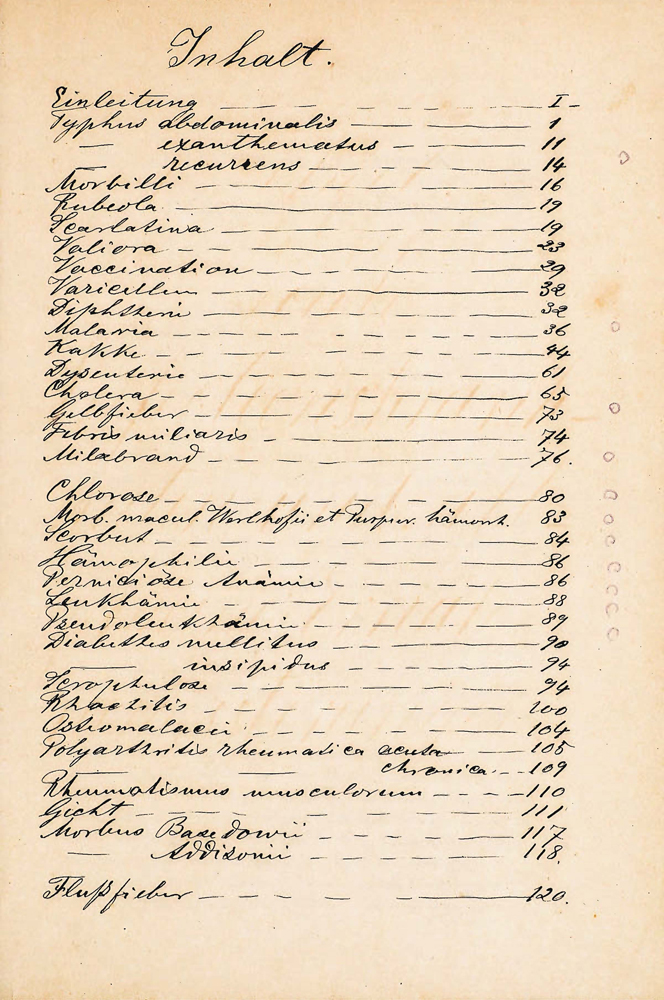 Inhalt.
Einleitung — — — — I -
Typhus abdominalis — — 1
— exanthematus — — 11
— recurrens — — 14
Morbilli — — 16
Rubeola — — 19
Scarlatina — — 19
Valiora — — 23
Vaccination — — 29
Varicellen — — 32
Diphtherie — — 32
Malaria — — 36
Kakke — — 44
Dysenterie — — 61
Cholera — — 65
Gelbfieber — — 73
Febris miliaris — — 74
Milzbrand — — 76.
Chlorose — — 80
Morb. macul. Werlhofii et Purpur. hämorrh. 83
Scorbut — — 84
Hämophilie — — 86
Perniciöse Anämie — — 86
Leukhämie — — 88
Pseudoleukhämie — — 89
Diabethes mellitus — — 90
— insipidus — — 94
Scrophulose — — 94
Rhachitis — — 100
Osteomalacie — — 104
Polyarthritis rheumatica acuta — — 105
— chronica. — 109
Rheumatismus musculorum — — 110
Gicht — — 111
Morbus Basedowii — — 117
— Addisonii — — 118.
Flußfieber — — 120.